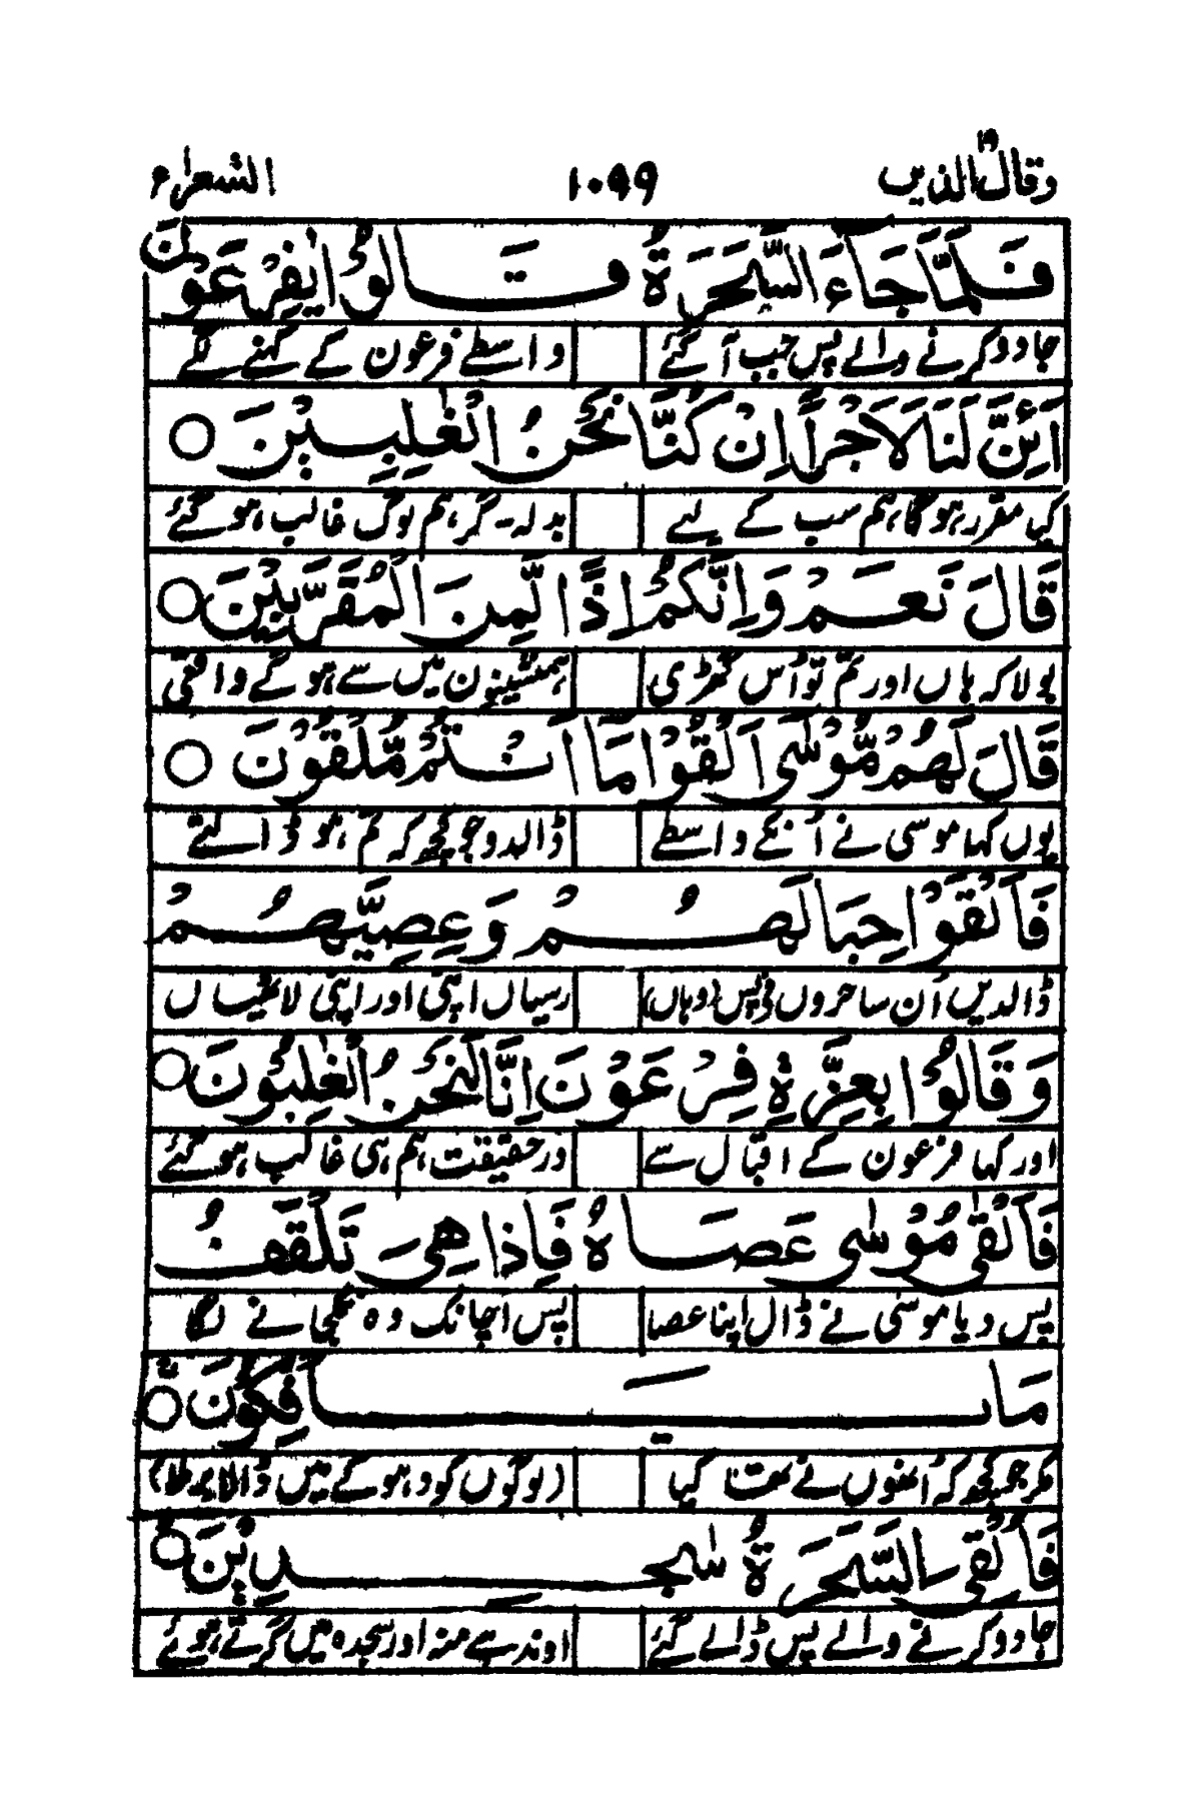 وقال الذین ۱۹ ۱۰۹۹ الشعراء
فَلَمَّا جَاءَ السَّحَرَةُ قَالُوْا لِفِرْعَوْنَ
جادو کرنے والے پس جب آ گئے واسطے فرعون کے کہنے لگے
اَئِنَّ لَنَا لَاَجْرًا اِنْ كُنَّا نَحْنُ الْغٰلِبِيْنَ ○
کیا مقرر ہو گا ہم سب کے لیے بدلہ گر ہم لوگ غالب ہو گئے
قَالَ نَعَمْ وَاِنَّكُمْ اِذًا لَّمِنَ الْمُقَرَّبِيْنَ ○
بولا کہ ہاں اور تم تو اُس گھڑی ہمنشینوں میں سے ہو گے واقعی
قَالَ لَهُمْ مُّوْسٰى اَلْقُوْا مَا اَنْتُمْ مُّلْقُوْنَ ○
یوں کہا موسی نے اُنکے واسطے ڈالدو جو کچھ کہ تم ہو ڈالتے
فَاَلْقَوْا حِبَالَهُمْ وَعِصِيَّهُمْ
ڈالدیں اُن ساحروں نے پس (وہاں) رسیاں اپنی اور اپنی لاٹھیاں
وَقَالُوْا بِعِزَّةِ فِرْعَوْنَ اِنَّا لَنَحْنُ الْغٰلِبُوْنَ ○
اور کہا فرعون کے اقبال سے در حقیقت ہم ہی غالب ہو گئے
فَاَلْقٰى مُوْسٰى عَصَاهُ فَاِذَا هِىَ تَلْقَفُ
پس دیا موسٰی نے ڈال اپنا عصا پس اچانک وہ نگل جانے لگا
مَا يَاْفِكُوْنَ ○
مکر جو کچھ کہ اُنھوں نے تھا کیا (لوگوں کو دھوکے میں ڈالا برملا)
فَاُلْقِىَ السَّحَرَةُ سٰجِدِيْنَ ○
جادو کرنے والے پس ڈالے گئے اوندھے منہ اور سجدہ میں گرتے ہوئے